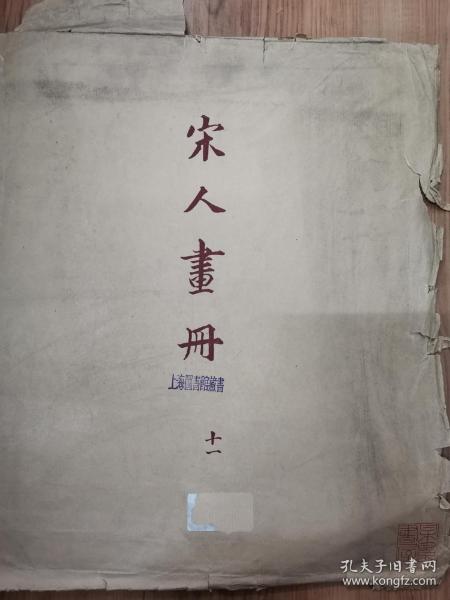 宋人畫冊
上海圖書館藏書
十一
孔夫子旧书网
www.kongfz.com